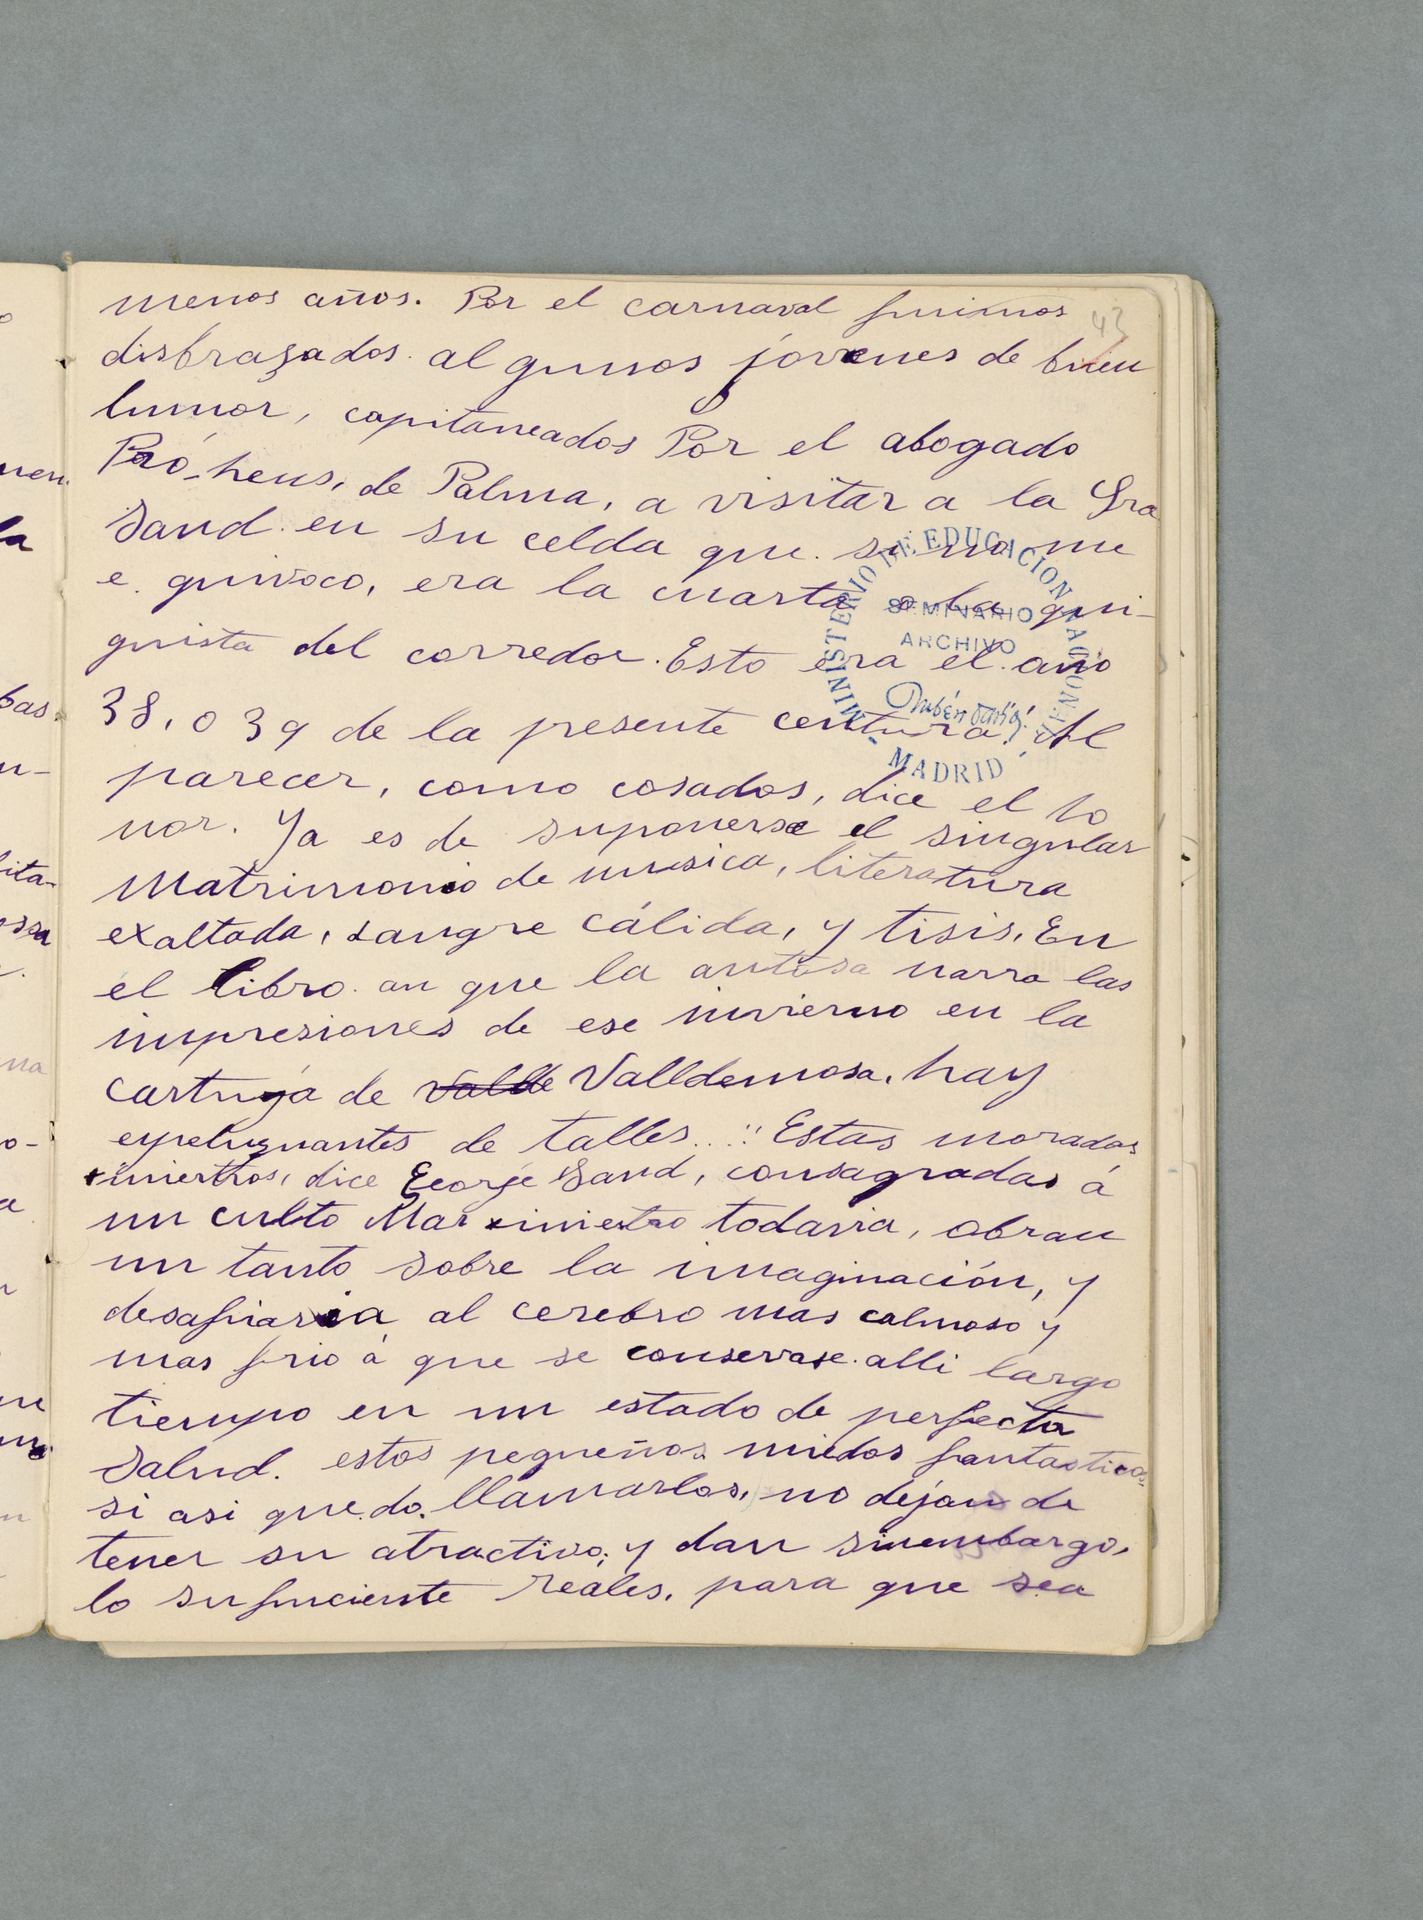 menos años. Por el carnaval fuimos
43
disfrazados. algunos jóvenes de buen
humor, capitaneados Por el abogado
Pró-hens, de Palma, a visitar a la Sra
Sand en su celda que. si no me
e. quivoco, era la cuarta o la qui-
guista del corredor. Esto era el año
38, o 39 de la presente centura. Al
parecer, como casados, dice el to
nor. Ya es de suponerse el singular
Matrimonio de musica, literatura
exaltada, sangre cálida, y tisis, En
él libro. an que la autosa narra las
impresiones de ese invierno en la
cartuja de Valle Valldemosa, hay
espeluznantes de talles...:: Estas moradas
siniestros, dice George Sand, consagradas á
un culto Mas siniestro todavia, obran
un tanto sobre la imaginación, y
desafiaria al cerebro mas calmoso y
mas frio á que se conservase. alli largo
tiempo en un estado de perfecta
Salud. estos pequeños miedos fantasticos
si asi que.do. llamarlos, no dejan de
tener su atractivo; y dan sinembargo,
lo sufuciente reales, para que sea
MINISTERIO DE EDUCACION NACIONAL
SEMINARIO
ARCHIVO
Rubén Darío
- MADRID -